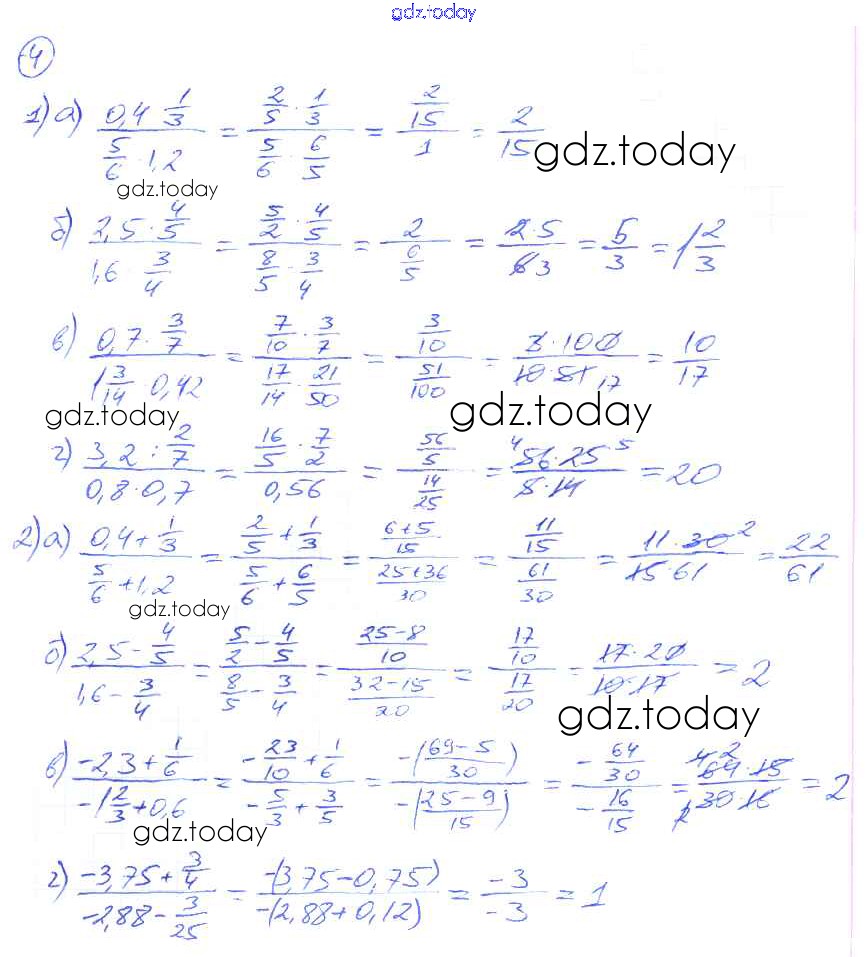 gdz.today
4
1) а) (0,4 · 1/3)/(5/6 · 1,2) = (2/5 · 1/3)/(5/6 · 6/5) = (2/15)/1 = 2/15
gdz.today
gdz.today
б) (2,5 · 4/5)/(1,6 · 3/4) = (5/2 · 4/5)/(8/5 · 3/4) = 2/(6/5) = (2·5)/(6 3) = 5/3 = 1 2/3
в) (0,7 · 3/7)/(1 3/14 · 0,42) = (7/10 · 3/7)/(17/14 · 21/50) = (3/10)/(51/100) = (3·100)/(10·51 17) = 10/17
gdz.today
gdz.today
г) (3,2 : 2/7)/(0,8·0,7) = (16/5 · 7/2)/0,56 = (56/5)/(14/25) = (4 56·25 5)/(5·14) = 20
2) а) (0,4 + 1/3)/(5/6 + 1,2) = (2/5 + 1/3)/(5/6 + 6/5) = ((6+5)/15)/((25+36)/30) = (11/15)/(61/30) = (11·30 2)/(15·61) = 22/61
gdz.today
б) (2,5 - 4/5)/(1,6 - 3/4) = (5/2 - 4/5)/(8/5 - 3/4) = ((25-8)/10)/((32-15)/20) = (17/10)/(17/20) = (17·20)/(10·17) = 2
gdz.today
в) (-2,3 + 1/6)/(-1 2/3 + 0,6) = (-23/10 + 1/6)/(-5/3 + 3/5) = (-((69-5)/30))/(-((25-9)/15)) = (-64/30)/(-16/15) = (4 2 64·15)/(2 30·16) = 2
gdz.today
г) (-3,75 + 3/4)/(-2,88 - 3/25) = (-(3,75-0,75))/(-(2,88+0,12)) = (-3)/(-3) = 1